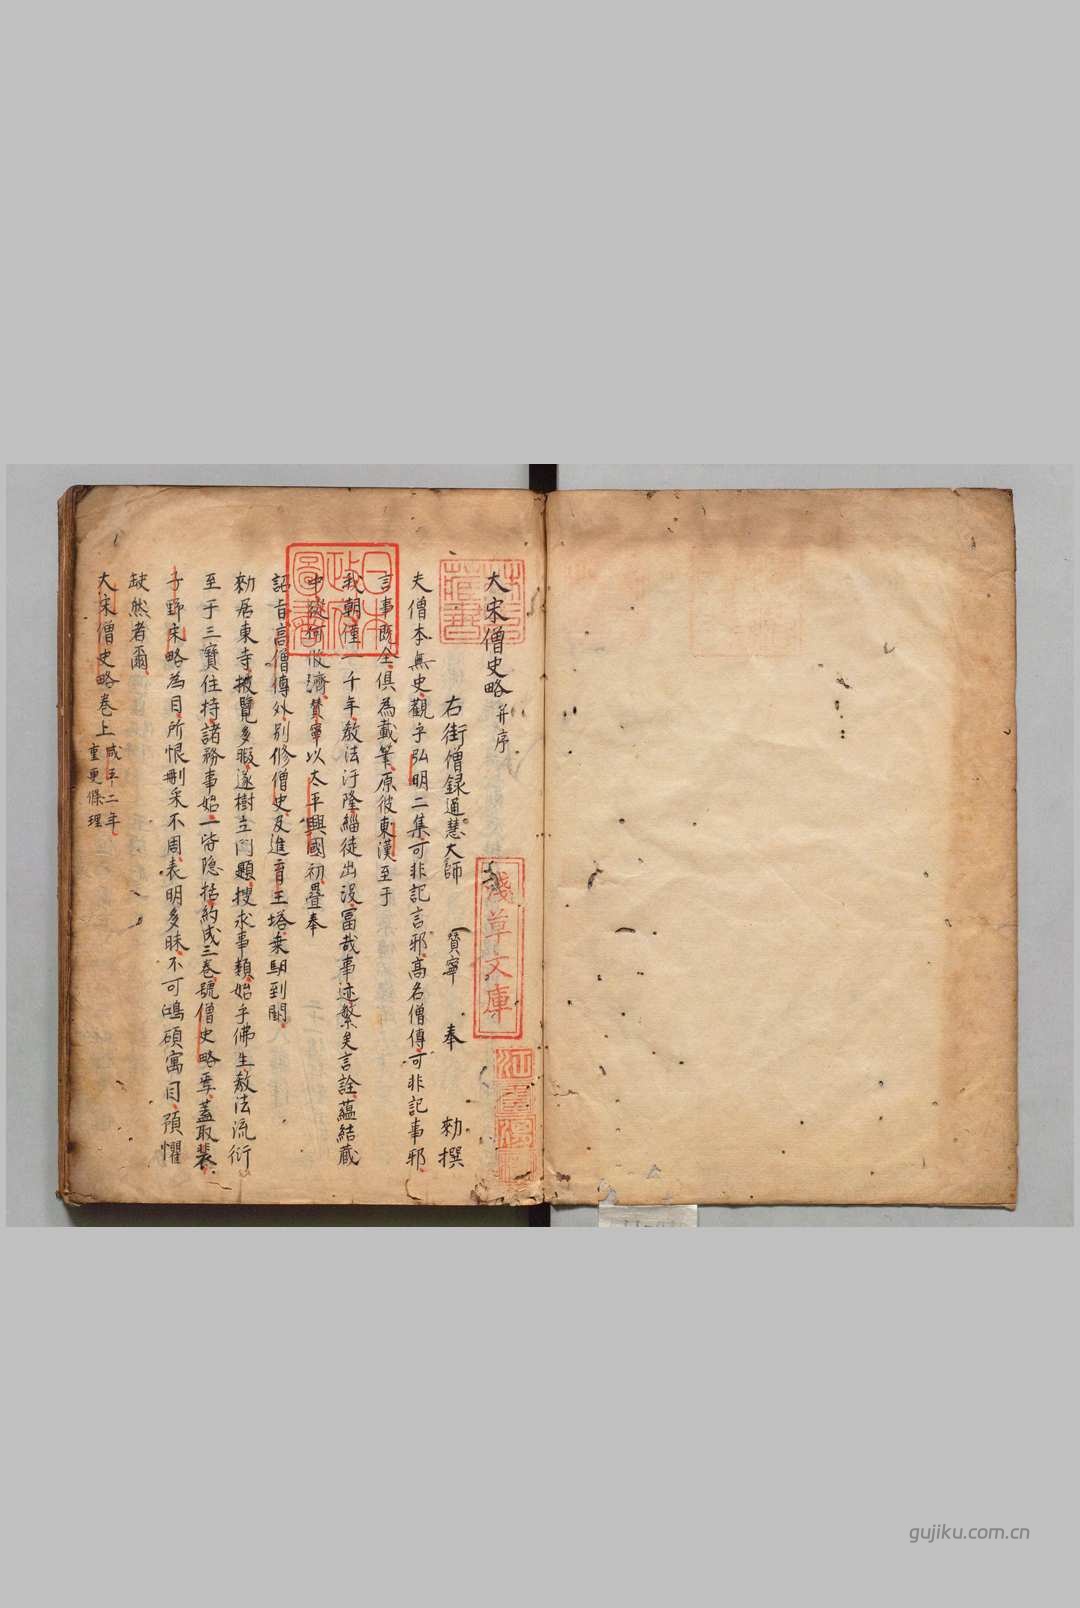 大宋僧史略并序
右街僧録通慧大師 贊寧 奉 勑撰
夫僧本無史觀乎弘明二集可非記言邪高名僧傳可非記事邪
言事既全俱為載筆原彼東漢至于
我朝僅一千年教法汙隆緇徒出没冨哉事迹繁矣言詮蘊結藏
中從何攸濟贊寧以太平興國初疊奉
詔旨高僧傳外別修僧史及進育王塔乗馹到闕
勑居東寺披覽多暇遂樹立門題搜求事類始乎佛生教法流衍
至于三寳住持諸務事始一皆隐括約成三卷號僧史略焉蓋取裴
子野宋略為目所恨刪采不周表明多昧不可鴻碩寓目預懼
缺然者爾
大宋僧史略卷上 咸平二年
重更條理
日本
政府
圖書
淺草文庫
gujiku.com.cn